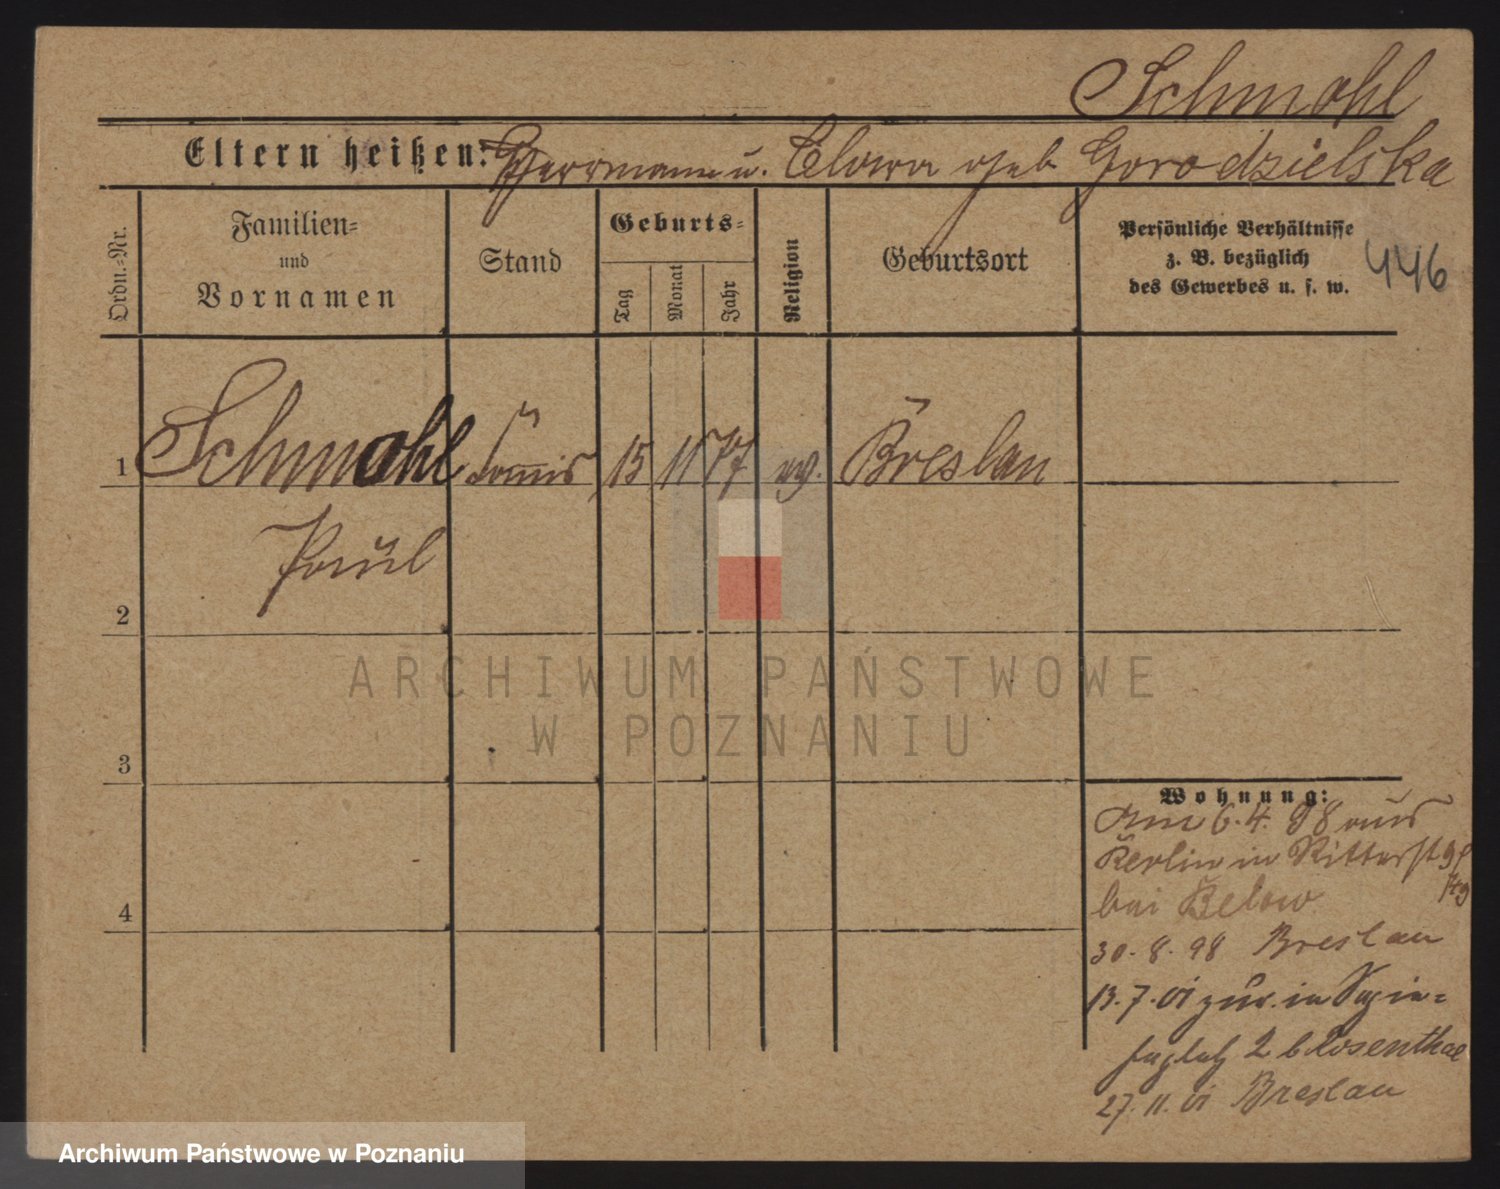 Schmohl
Eltern heißen: Herrmann u. Clara geb Gorodzielska
Ordn.-Nr.
Familien-
und
Vornamen
Stand
Geburts-
Tag
Monat
Jahr
Religion
Geburtsort
Persönliche Verhältnisse
z. B. bezüglich
des Gewerbes u. s. w.
446
1 Schmohl 15 11 77 Breslau
Paul
2
3
4
Wohnung:
6. 4. 98 aus
Berlin in Ritterst
bei Below
30. 8. 98 Breslau
13. 7. 01 zur. in
2 b Rosenthal
27. 11. 01 Breslau
ARCHIWUM PAŃSTWOWE
W POZNANIU
Archiwum Państwowe w Poznaniu